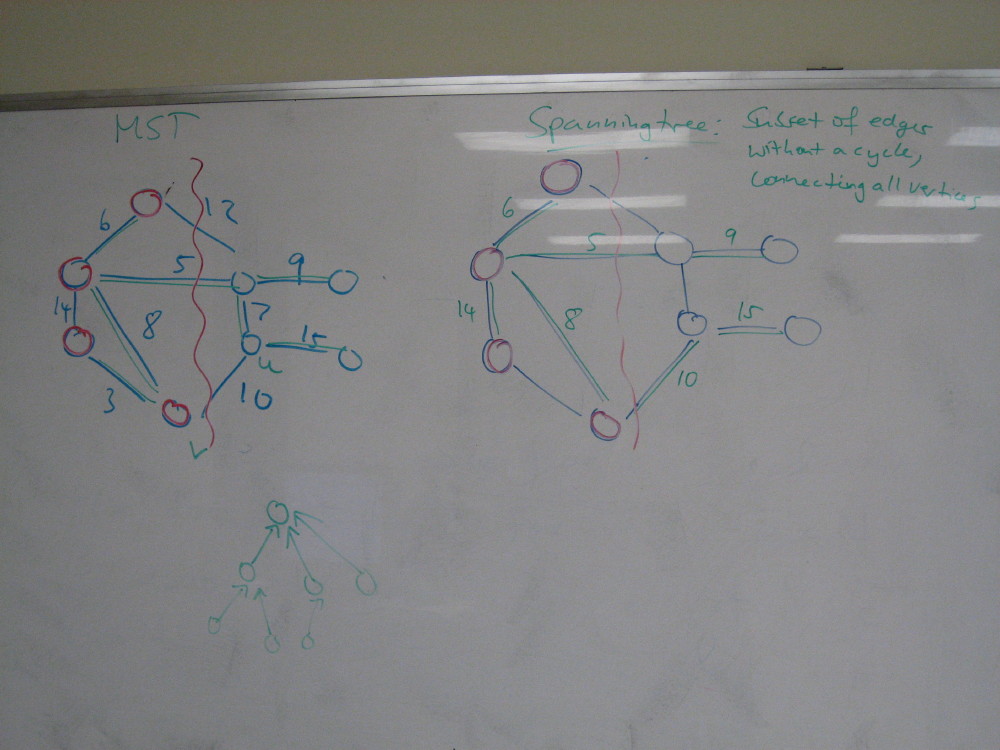 MST
Spanning tree: Subset of edges
without a cycle,
connecting all vertices
12
6
5
9
14
8
7
15
u
3
10
v
6
5
9
14
8
15
10